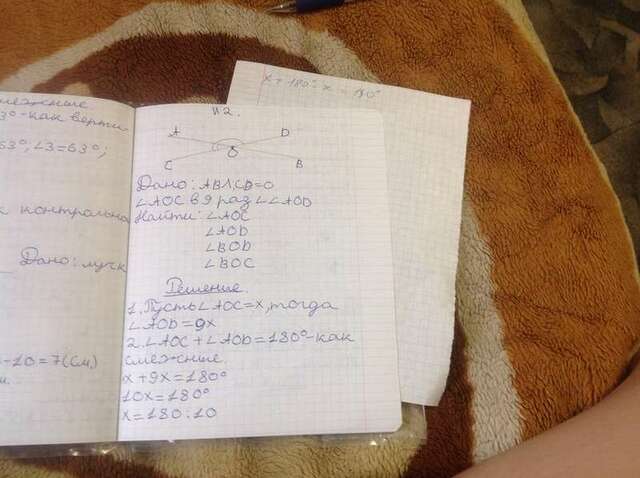 смежные
3°-как верти-
63°; ∠3=63°;
к контрольна
Дано: луч к
-10=7(см)
x+180°-x=180°
№2.
A D
O
C B
Дано: AB∩CD=O
∠AOC в 9 раз ∠∠AOD
Найти: ∠AOC
∠AOD
∠BOD
∠BOC
Решение.
1. Пусть ∠AOC=x, тогда
∠AOD=9x
2. ∠AOC+∠AOD=180°-как
смежные.
x+9x=180°
10x=180°
x=180:10